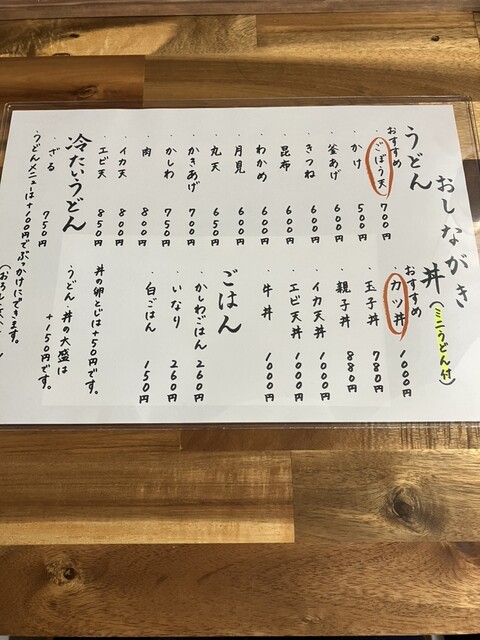 おしながき
うどん
おすすめ
・ごぼう天 700円
・かけ 500円
・釜あげ 600円
・きつね 600円
・昆布 600円
・わかめ 600円
・月見 600円
・丸天 650円
・かきあげ 700円
・かしわ 750円
・肉 800円
・イカ天 800円
・エビ天 850円
冷たいうどん
・ざる 750円
・うどんメニューは+100円でぶっかけにできます。
丼(ミニうどん付)
おすすめ
・カツ丼 1000円
・玉子丼 780円
・親子丼 880円
・イカ天丼 1000円
・エビ天丼 1000円
・牛丼 1000円
ごはん
・かしわごはん 260円
・いなり 260円
・白ごはん 150円
丼の卵とじは+50円です。
・うどん・丼の大盛は
+150円です。